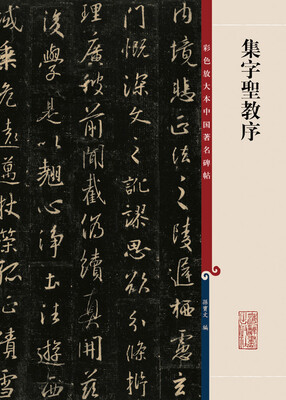 集字聖教序
彩色放大本中国著名碑帖
孫寶文 編
内境悲正法之陵遲栖慮玄
門慨深文之訛謬思欲分條析
理廣彼前聞截偽續真開茲
後學是以翹心淨土法遊西
域乘危遠邁杖策孤征積雪